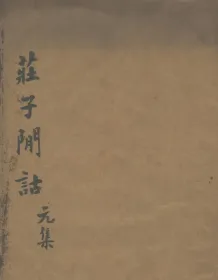 莊子閒詁
元集